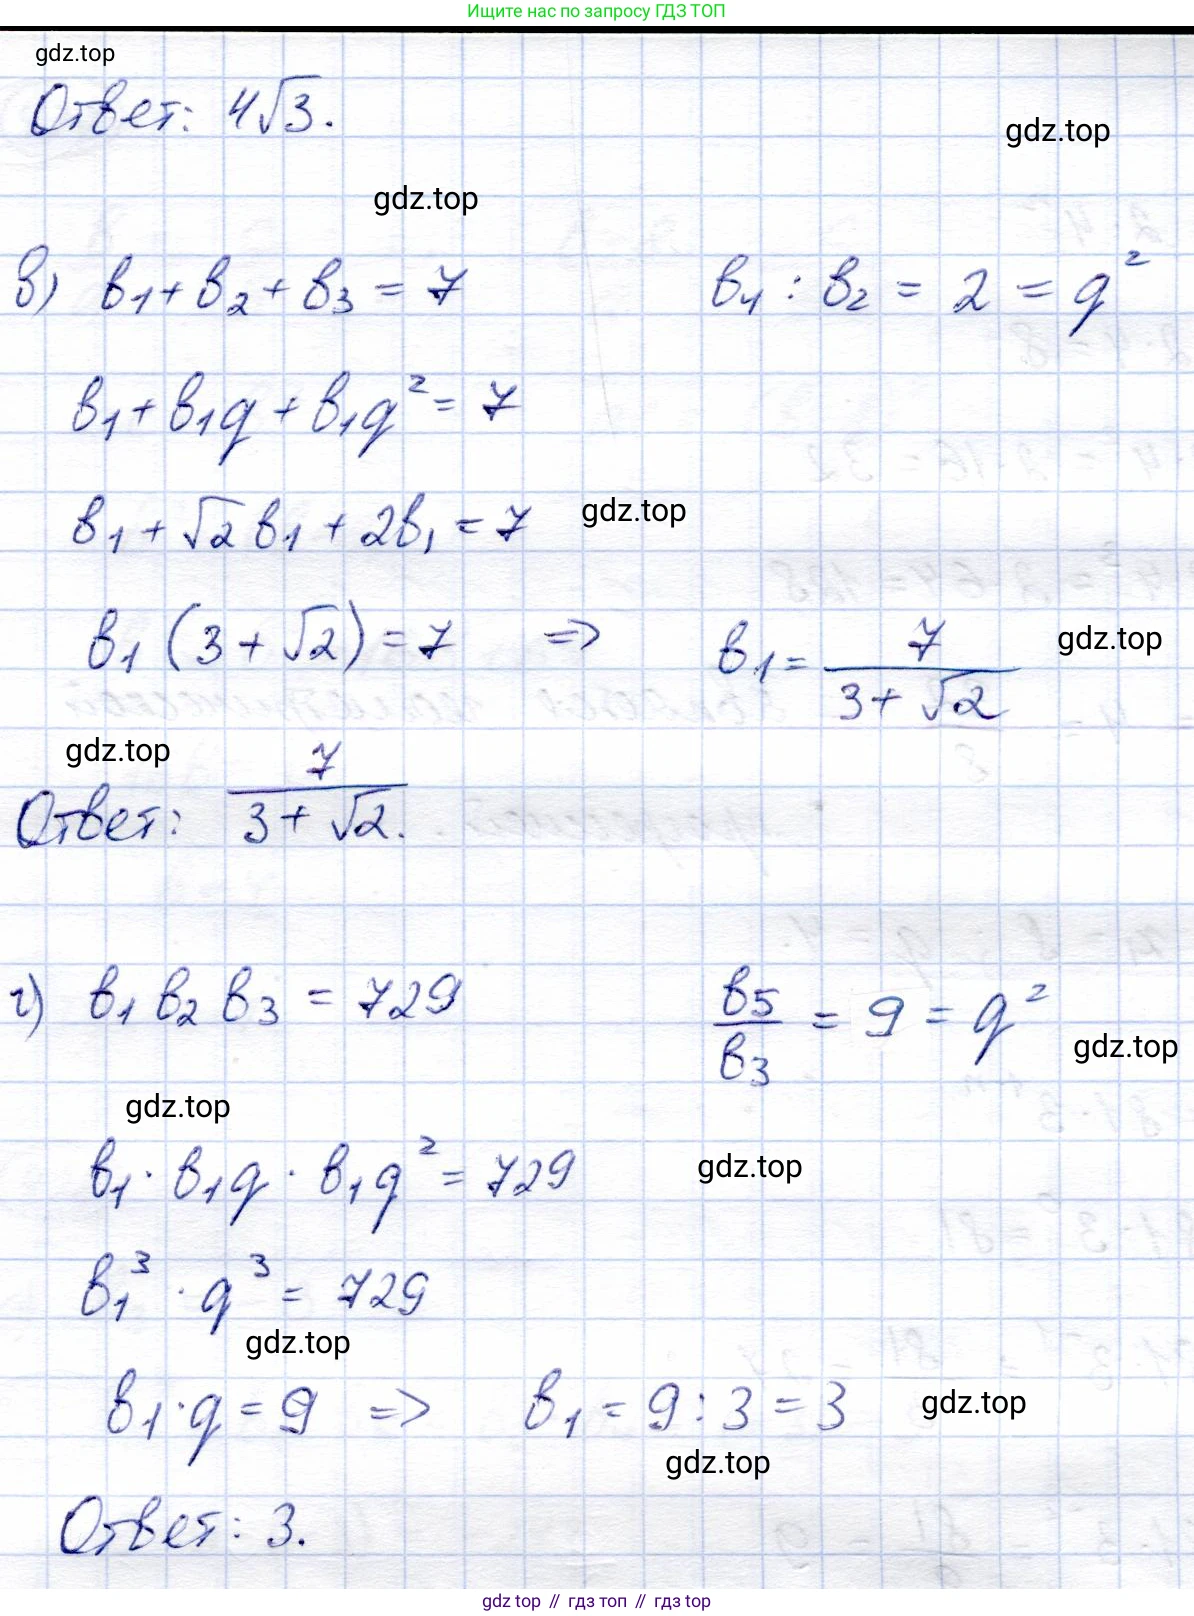 Ищите нас по запросу ГДЗ ТОП
gdz.top
Ответ: 4√3.
gdz.top
gdz.top
в) b₁ + b₂ + b₃ = 7    b₄ : b₂ = 2 = q²
b₁ + b₁q + b₁q² = 7
b₁ + √2 b₁ + 2b₁ = 7    gdz.top
b₁ (3 + √2) = 7  =>  b₁ = 7/(3 + √2)    gdz.top
gdz.top
Ответ: 7/(3 + √2).
г) b₁ b₂ b₃ = 729    b₅/b₃ = 9 = q²
gdz.top
gdz.top
b₁ · b₁q · b₁q² = 729    gdz.top
b₁³ · q³ = 729
gdz.top
b₁ · q = 9  =>  b₁ = 9 : 3 = 3    gdz.top
gdz.top
Ответ: 3.
gdz.top // гдз топ // gdz top